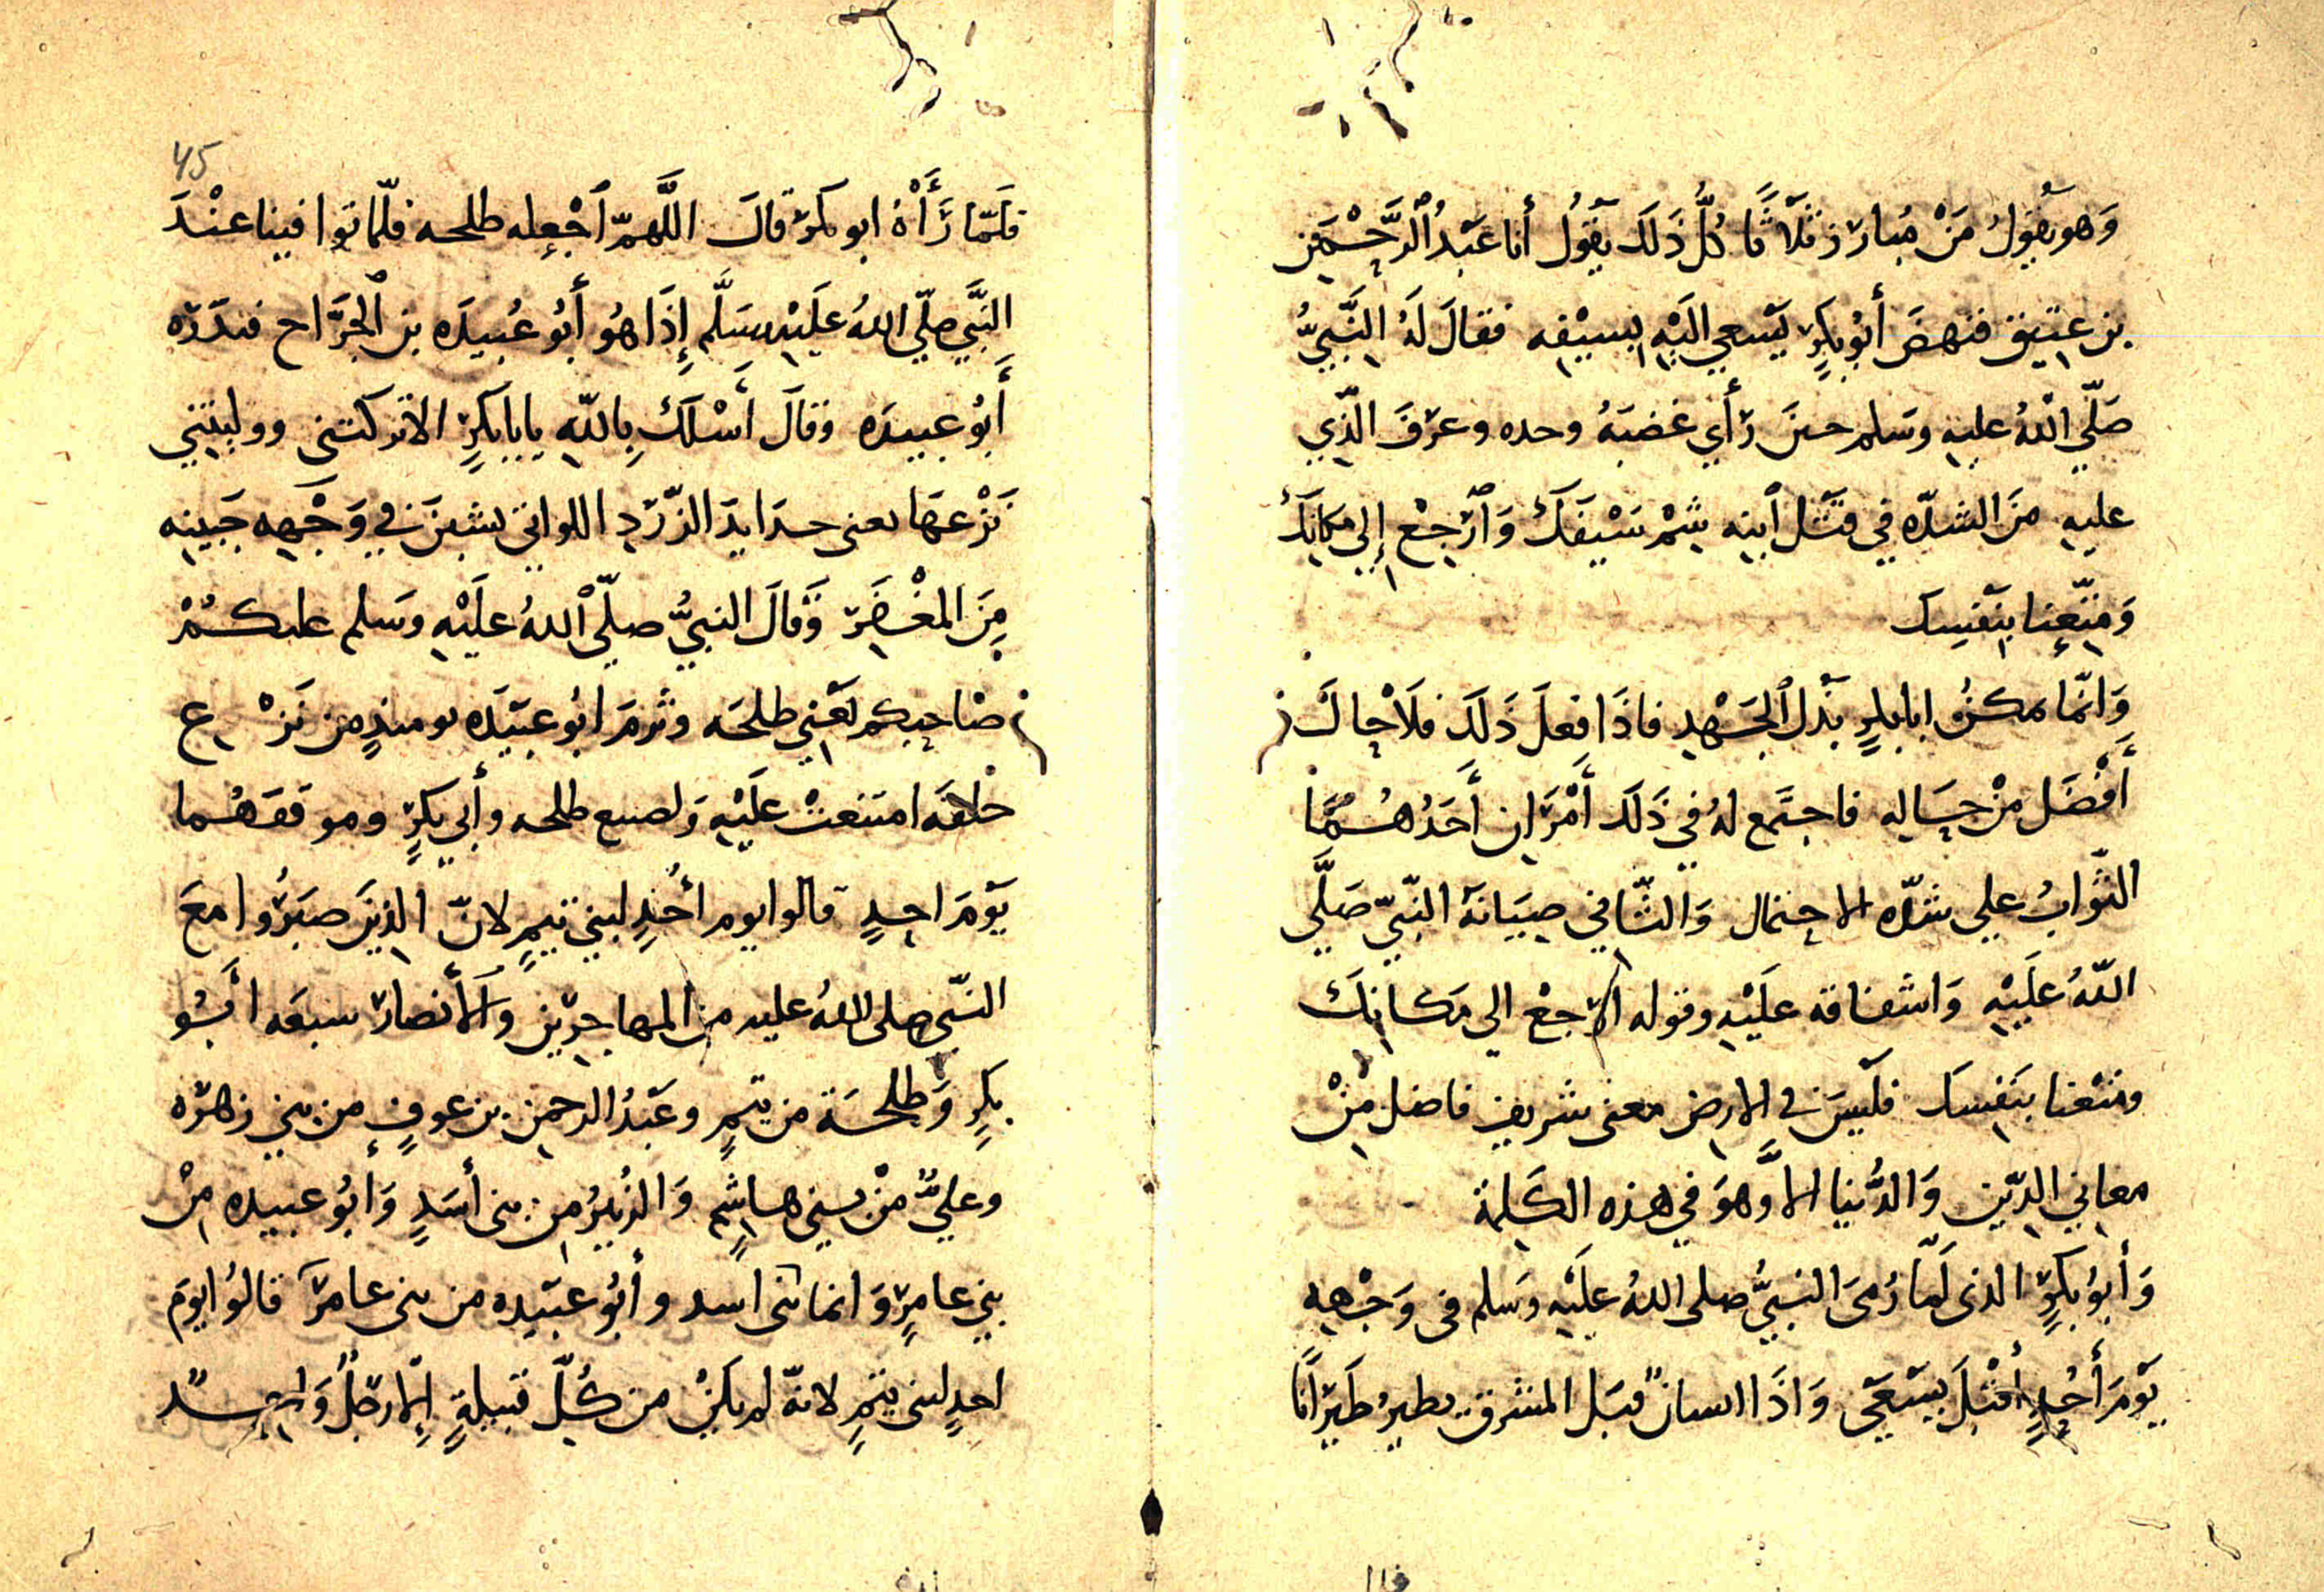 وَهو يَقُولُ مَنْ مُبارز ثَلاَثًا كُلُّ ذَلَك يَقُولُ أنا عَبْدُ ٱلرَّحْمَن
بن عتيق فنهضَ أبُو بكرٍ يَسعي اليْهِ بسيْفه فقالَ لَهُ النَّبيُّ
صَلّي اللهُ عليه وسَلم حينَ رَأي غضبَهُ وحده وعرَفَ الذّي
عليهِ منَ الشدّه في قتْل ٱبنه شمْ سَيْفَكَ وَٱرْجِعْ إلي مكانِكَ
وَمتِّعنا بنَفسِك
وَانّما يمكنُ ابا بكرٍ بَذل الجَهْدِ فاذَا فعلَ ذَلَكَ فلاَ حالَ
أفْضَل منْ حَاله فاجتَمع لهُ في ذَلَك أمْرَان أَحَدُهُما
الثّوابُ علي شدّه الاحتمال وَالثّاني صيَانَة النّبيّ صَلَّي
اللّهُ عَلَيْهِ وَاشفاقه عَلَيْهِ وقوله ارجعْ الي مَكانِكَ
ومَتعْنا بنَفِسك فلَيسَ في الارض معنى شريف فاضل مِنْ
معاني الدّين وَالدُّنيا الاَّ وهوَ في هذه الكَلمة
وَأبوُ بَكرٍ الذى لَمّا رُمىَ النبيُّ صلى اللهُ عليْه وَسَلم فى وَجْهِهِ
يَوْمَ أُحُدٍ أقبَلَ يَسَعَى وَاذَا انسانٌ قبَل المشرق يطيرُ طَيَرَانًا
فلَمّا رَأَهُ ابو بكر قالَ اللَّهمّ ٱجْعله طلحه فلمّا توافينا عنْدَ
النَّبيّ صلّي اللهُ عَليْه وسَلَّم إذَا هُو أبُو عُبيدَه بن الجَرَّاح فبَدَرَه
أبُو عبيدَه وقالَ أسْلَكَ باللّهِ يابا بَكرٍ الا تركتنى ووليتني
نَزْعهَا يعنى حدَايدَ الزّرَدِ اللواتي نشبنَ في وَجْهِه جَبينه
مِنَ المغْضَر وَقالَ النبيُّ صلّي اللهُ علَيْهِ وسَلم عليكُمْ
صَاحبكم يَعْني طلحَه وثرمَ ابُو عبَيْدَه يومئذٍ من نَزْع
حلقَه امتَنعتْ علَيْهِ وَلصنيع طلحه وأبي بكرٍ وموقفهُما
يَوْمَ احدٍ قالوا يوم أحُدٍ لبني تيمٍ لانّ الذينَ صبَرُوا معَ
النّبى صلى اللهُ عليه من المهاجرين وَالأنصار سبعَه أبُو
بكرٍ وَطلحَة من تيمٍ وعَبدُ الرحمن بن عوفٍ من بني زهره
وعليُّ منْ بني هاشمٍ وَالزُبيرُ من بنى أسَدٍ وَأبُو عبيده مِنْ
بني عامرٍ وَانما بنى اسد وأبُو عبَيْده من بنى عامرَ قالوُا يومَ
احدٍ لبنى تيمٍ لانهّ لم يَكنْ من كُلّ قبيلةٍ إلا رَجُلٌ وَاحدٌ